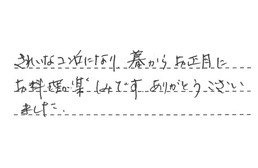 きれいなコンロになり 暮からお正月に
お料理が楽しみです ありがとうござい
ました.